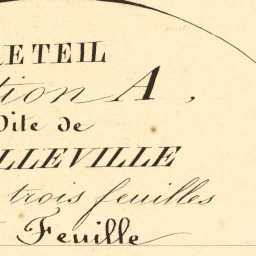 RETEIL
tion A,
Dite de
LLEVILLE
trois feuilles
Feuille